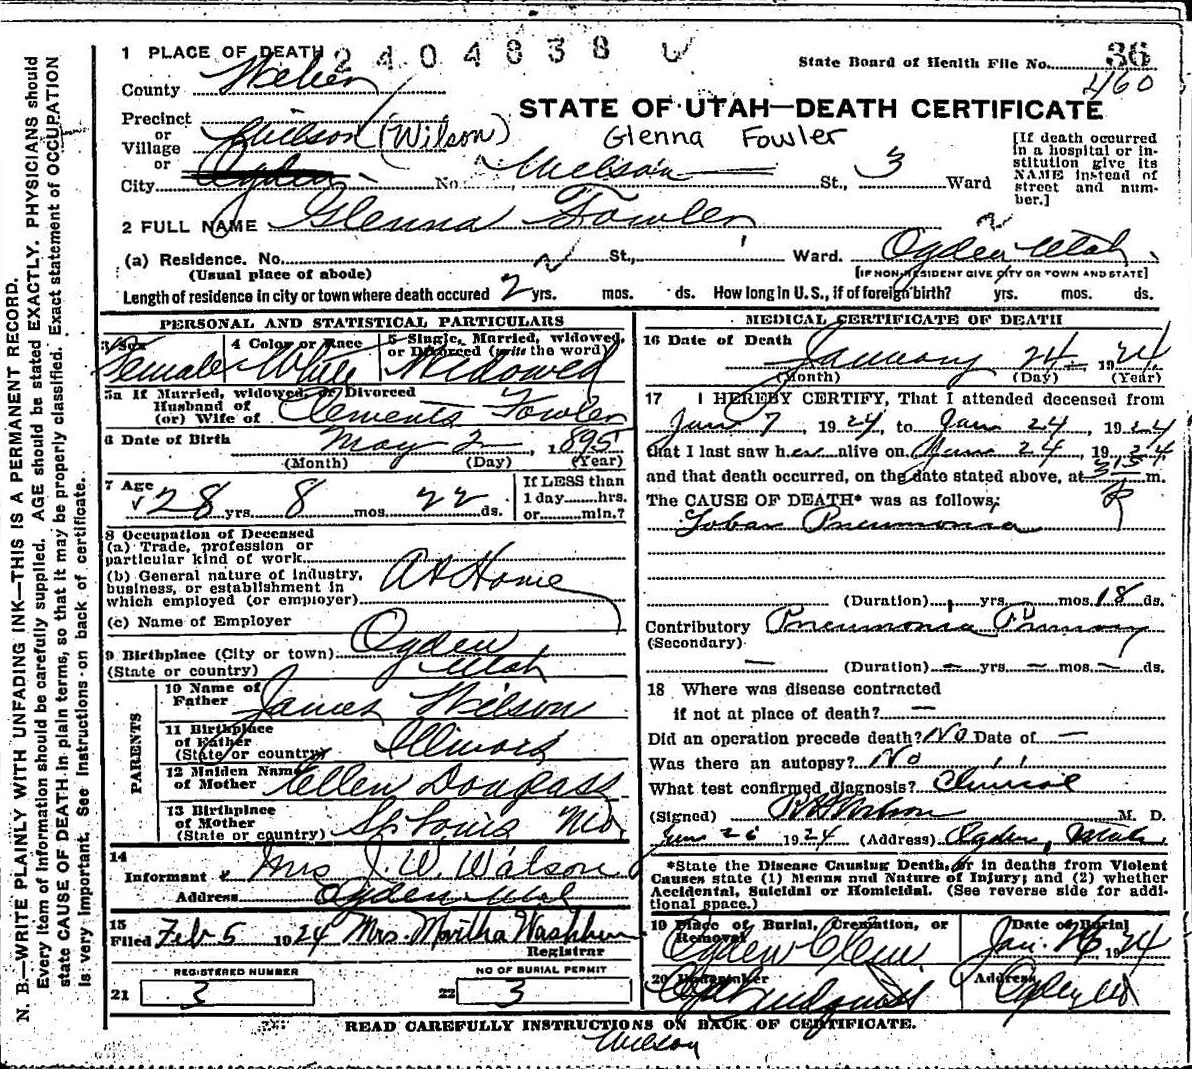 N. B.—WRITE PLAINLY WITH UNFADING INK—THIS IS A PERMANENT RECORD.
Every item of information should be carefully supplied. AGE should be stated EXACTLY. PHYSICIANS should
state CAUSE OF DEATH in plain terms, so that it may be properly classified. Exact statement of OCCUPATION
is very important. See Instructions on back of certificate.
1 PLACE OF DEATH 2404838
State Board of Health File No. 36
460
County Weber
STATE OF UTAH—DEATH CERTIFICATE
Precinct
or
Village Wilson (Wilson)
Glenna Fowler
or
City Ogden No. Wilson St., 3 Ward
[If death occurred
in a hospital or in-
stitution give its
NAME instead of
street and num-
ber.]
2 FULL NAME Glenna Fowler
(a) Residence. No. St., Ward. Ogden Utah
(Usual place of abode) [IF NON-RESIDENT GIVE CITY OR TOWN AND STATE]
Length of residence in city or town where death occured 2 yrs. mos. ds. How long in U. S., if of foreign birth? yrs. mos. ds.
PERSONAL AND STATISTICAL PARTICULARS
3 Sex 4 Color or Race 5 Single, Married, widowed,
or Divorced (write the word)
Female White Widowed
5a If Married, widowed, or Divorced
Husband of
(or) Wife of Clements Fowler
6 Date of Birth May 2, 1895
(Month) (Day) (Year)
7 Age 28 yrs. 8 mos. 22 ds.
If LESS than
1 day......hrs.
or......min.?
8 Occupation of Deceased
(a) Trade, profession or
particular kind of work
(b) General nature of industry,
business, or establishment in
which employed (or employer)
At Home
(c) Name of Employer
9 Birthplace (City or town) Ogden
(State or country) Utah
PARENTS
10 Name of
Father James Wilson
11 Birthplace
of Father
(State or country) Illinois
12 Maiden Name
of Mother Ellen Douglass
13 Birthplace
of Mother
(State or country) St Louis Mo
14
Informant Mrs J. W. Watson
Address Ogden Utah
15
Filed Feb 5 1924 Mrs. Martha Washburn
Registrar
REGISTERED NUMBER NO OF BURIAL PERMIT
21 3 22 3
MEDICAL CERTIFICATE OF DEATH
16 Date of Death
January 24 1924
(Month) (Day) (Year)
17 I HEREBY CERTIFY, That I attended deceased from
Jan 7, 1924, to Jan 24, 1924
that I last saw her alive on Jan 24, 1924
and that death occurred, on the date stated above, at 315 P m.
The CAUSE OF DEATH* was as follows:
Lobar Pneumonia
(Duration) yrs. mos. 18 ds.
Contributory Pneumonia Primary
(Secondary)
(Duration) — yrs. — mos. — ds.
18 Where was disease contracted
if not at place of death? —
Did an operation precede death? No Date of —
Was there an autopsy? No
What test confirmed diagnosis? Clinical
(Signed) M. D.
Jan 26 1924 (Address) Ogden, Utah
*State the Disease Causing Death, or in deaths from Violent
Causes state (1) Means and Nature of Injury; and (2) whether
Accidental, Suicidal or Homicidal. (See reverse side for addi-
tional space.)
19 Place of Burial, Cremation, or
Removal
Date of Burial
Ogden Jan. 26 1924
20 Undertaker
Address
Ogden Ut
READ CAREFULLY INSTRUCTIONS ON BACK OF CERTIFICATE.
Wilson